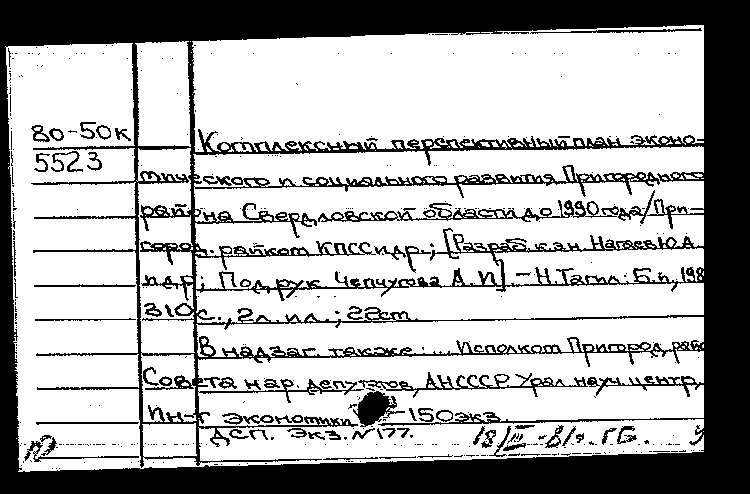 80-50к
5523
Комплексный перспективный план эконо=
мического и социального развития Пригородного
района Свердловской области до 1990 года/При=
город. райком КПСС и др.; [Разраб. к.э.н. Нагаев Ю.А.
и др.; Под рук. Чепчугова А.И] - Н.Тагил: Б.и, 198
310 с., 2л. ил.; 22 см.
В надзаг. также: ... Исполком Пригород. рай
Совета нар. депутатов, АН СССР Урал. науч. центр,
Ин-т экономики. -150 экз.
ДСП. Экз. №177. 18/III-81г. Г.Б.